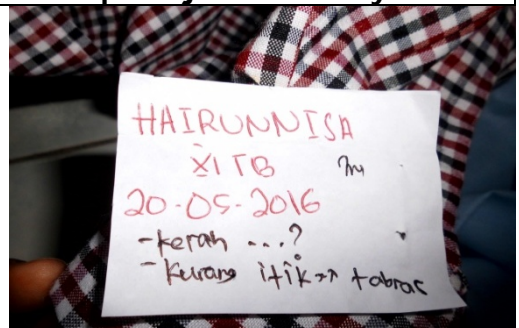 HAIRUNNISA
XI TB
20-05-2016
- kerah ...?
- Kurang itik